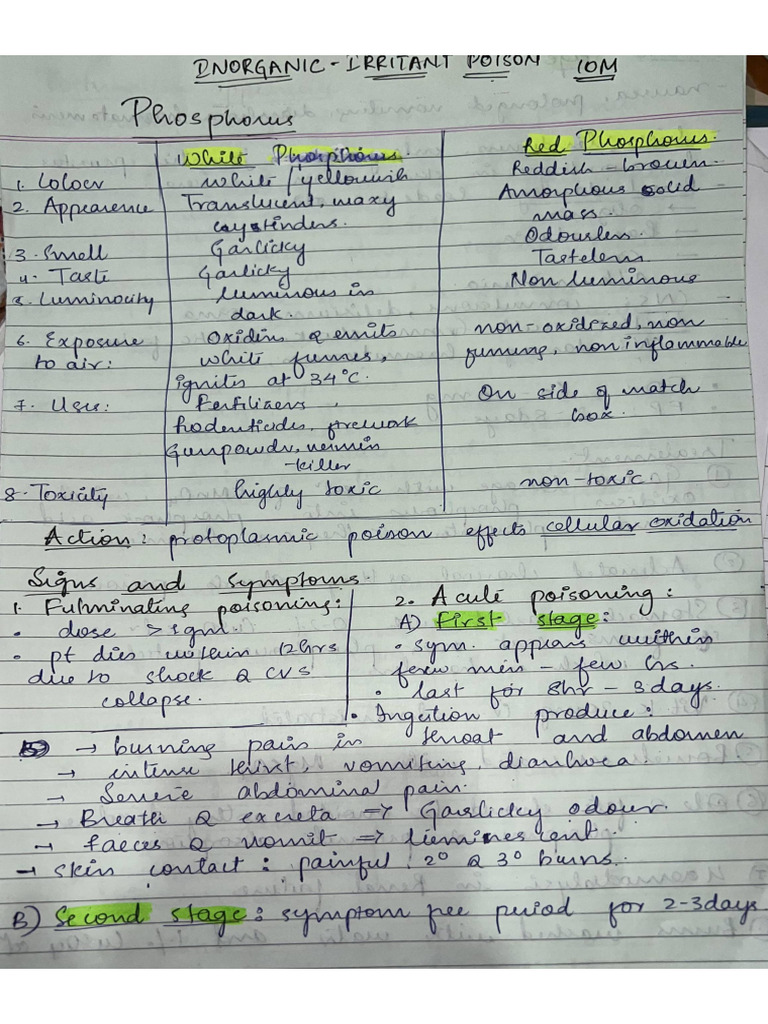 INORGANIC - IRRITANT POISON 10M
Phosphorus
White Phosphorus. Red Phosphorus.
1. Colour White / yellowish Reddish - brown.
2. Appearence Translucent, waxy Amorphous solid
cylinders. mass.
3. Smell Garlicky Odourless.
4. Taste Garlicky Tasteless.
5. Luminocity luminous in Non luminous
dark.
6. Exposure Oxidizes & emits non-oxidized, non
to air: white fumes, fuming, non inflammable
ignites at 34°C.
7. Uses: Fertilizers, On side of match
Rodenticides, firework box.
Gunpowdr, vermin
-killer
8. Toxicity highly toxic non-toxic
Action: protoplasmic poison effects cellular oxidation
Signs and Symptoms.
1. Fulminating poisoning: 2. Acute poisoning:
• dose > 1gm. A) First stage:
• pt dies within 12hrs • sym. appears within
due to shock & CVS few min - few hrs.
collapse. • last for 8hr - 3days.
• Ingestion produce:
→ burning pain in throat and abdomen
→ intense thirst, vomiting, diarrhoea.
→ Severe abdominal pain.
→ Breath & excreta => Garlicky odour.
→ faeces & vomit => luminescent.
→ skin contact: painful 2° & 3° burns.
B) Second stage: symptom free period for 2-3days